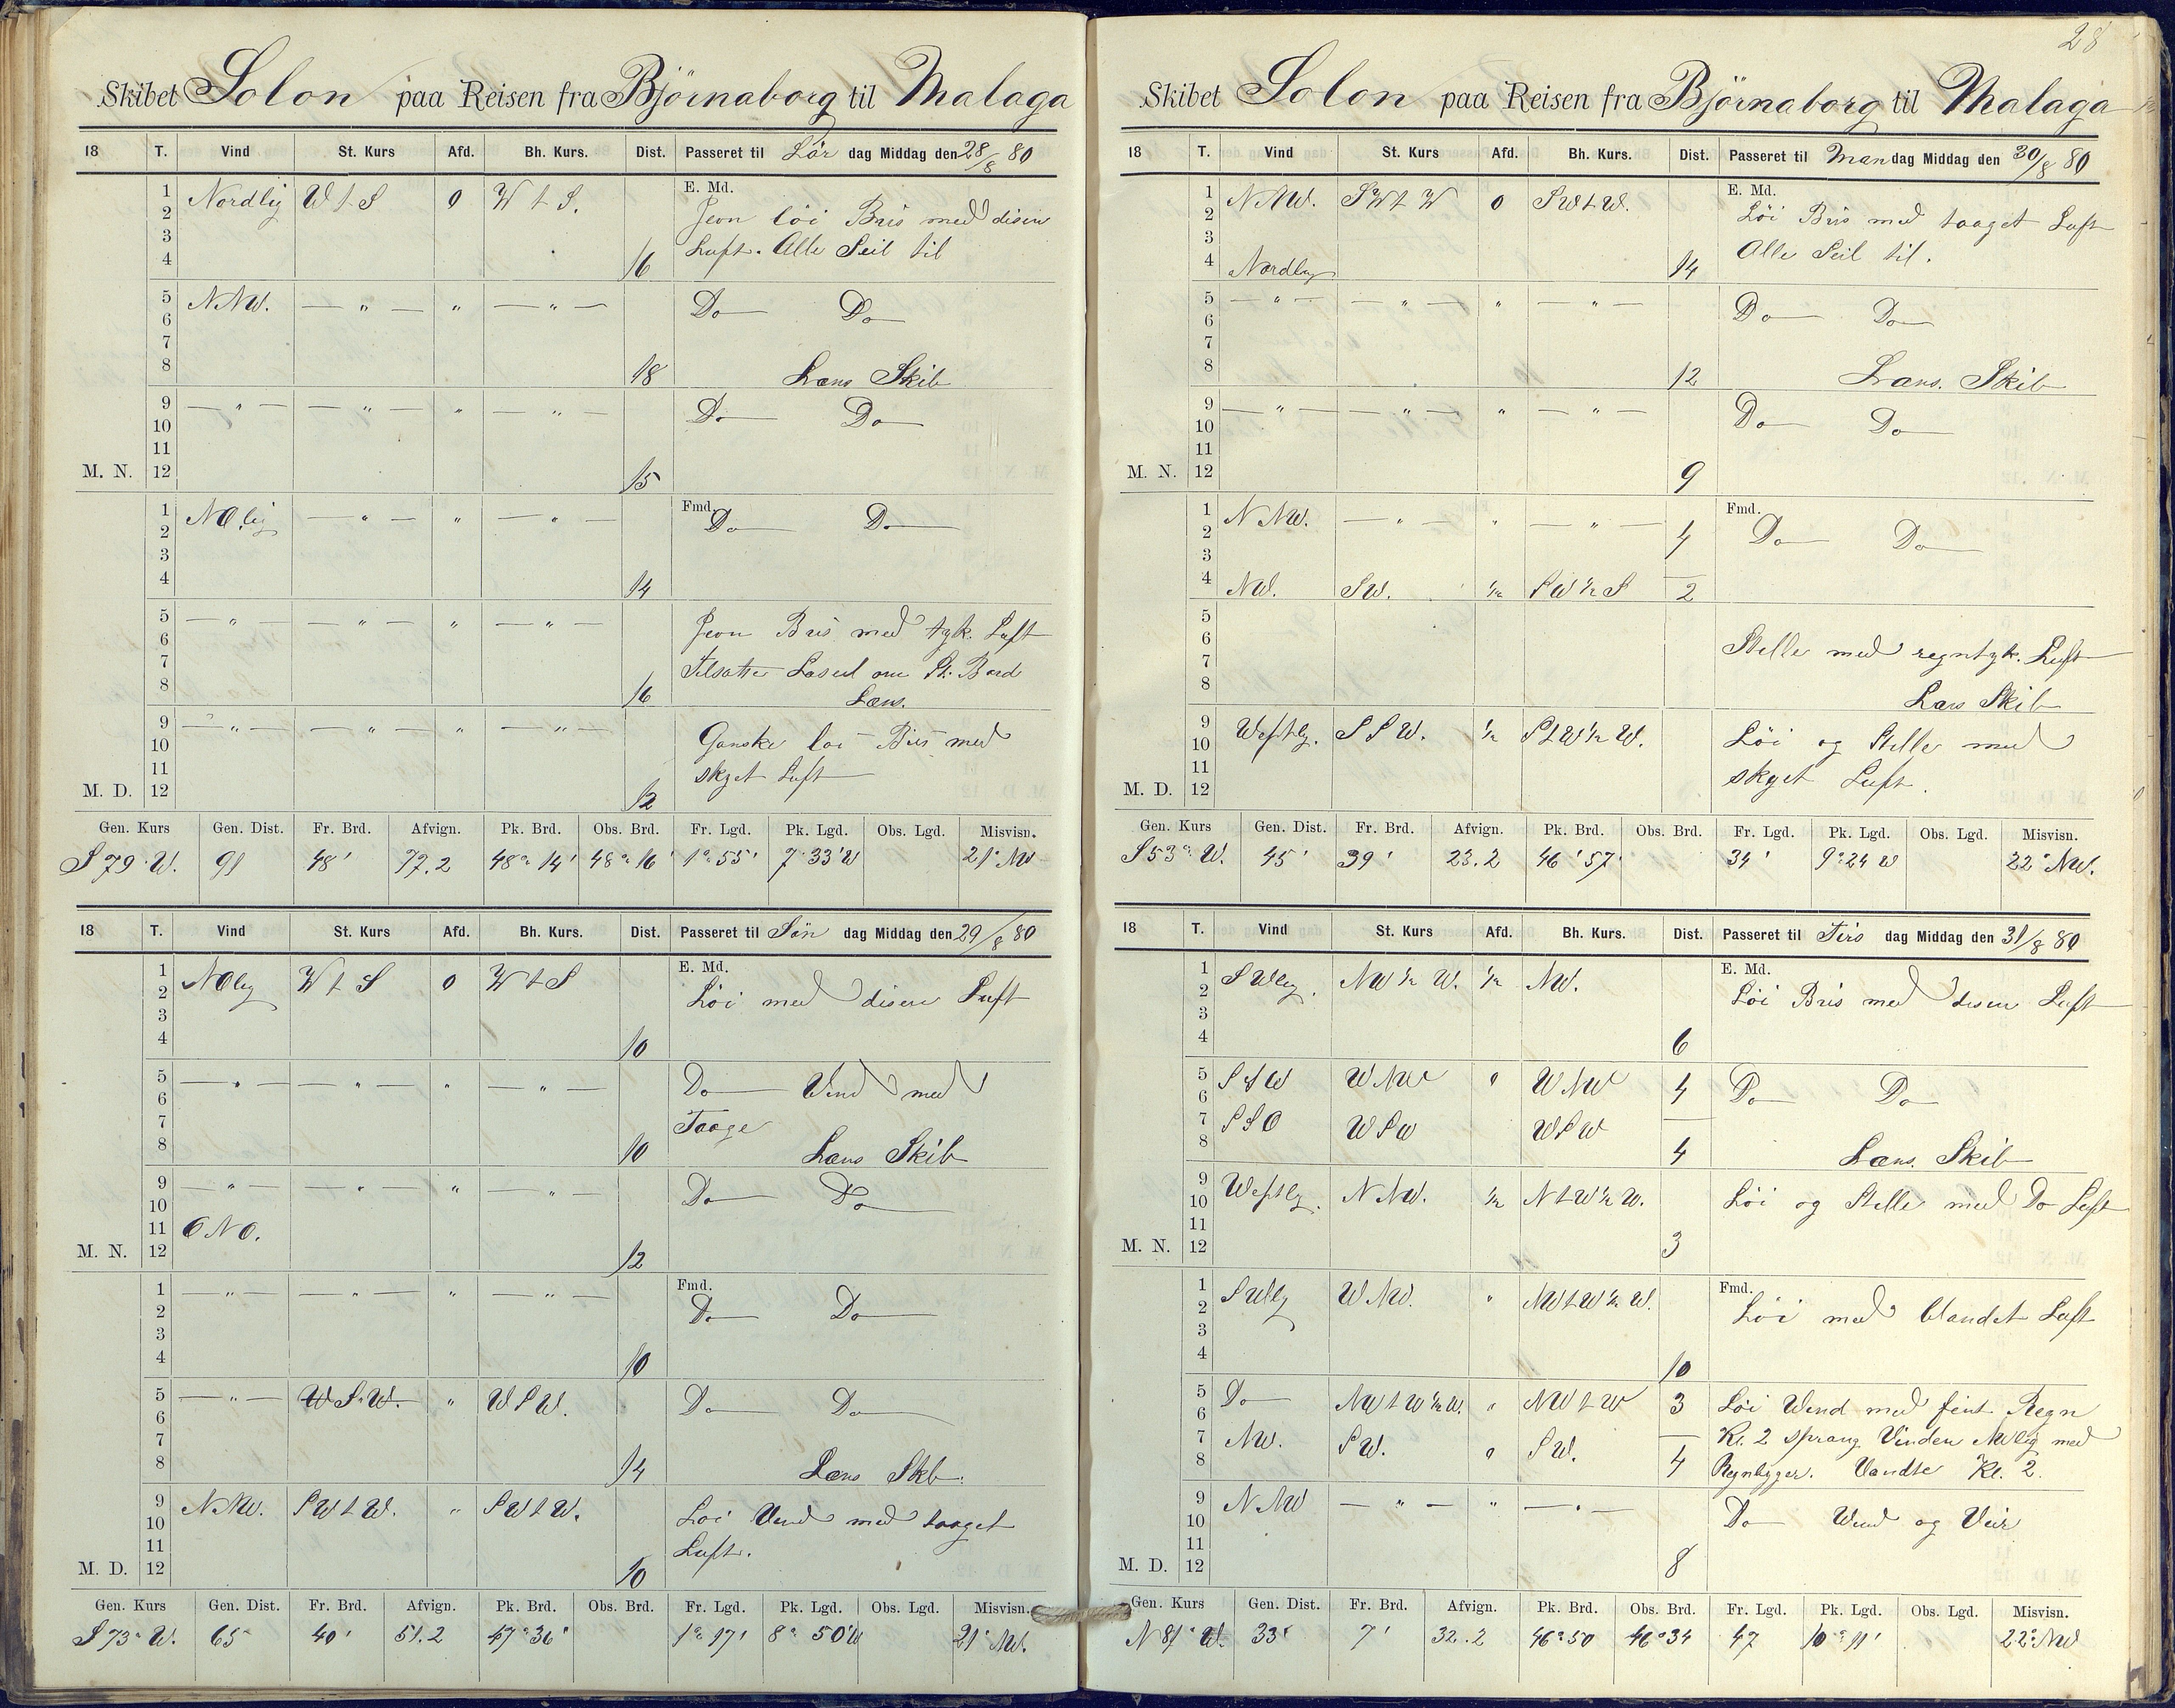 Skibet Solon paa Reisen fra Björnaborg til Malaga
18 T. Vind St. Kurs Afd. Bh. Kurs. Dist. Passeret til Lör dag Middag den 28/8 80
1 Nordlig W t S 0 W t S. E. Md.
2 Jevn löi Bris med disin
3 Luft. Alle Seil til
4 16
5 NNW. — " — " — " — Do Do
6
7
8 18 Læns Skib
9 — " — — " — " — " — Do Do
10
11
M. N. 12 15
1 NO.lig — " — " — " — Fmd. Do Do
2
3
4 14
5 — " — — " — " — " — Jevn Bris med tyk. Luft
6
7 Tilsatte Læseil om St. Bord
8 16 Læns.
9 — " — — " — " — " — Ganske löi Bris med
10
11 skyet Luft
M. D. 12 12
Gen. Kurs Gen. Dist. Fr. Brd. Afvign. Pk. Brd. Obs. Brd. Fr. Lgd. Pk. Lgd. Obs. Lgd. Misvisn.
S 79° W. 91 48' 77.2 48° 14' 48° 16' 1° 55' 7° 33' W 21° NW
18 T. Vind St. Kurs Afd. Bh. Kurs. Dist. Passeret til Sön dag Middag den 29/8 80
1 NOlig W t S 0 W t S E. Md.
2 Löi med disin Luft
3
4 10
5 — " — — " — " — " — Do Vind med
6
7 Taage
8 10 Læns Skib
9 — " — — " — " — " — Do Do
10
11 ONO.
M. N. 12 12
1 — " — — " — " — " — Fmd. Do Do
2
3
4 10
5 — " — W S W. " W S W. Do Do
6
7
8 14 Læns Skb.
9 NNW. SW t W. " SW t W. Löi Vind med taaget
10
11 Luft.
M. D. 12 10
Gen. Kurs Gen. Dist. Fr. Brd. Afvign. Pk. Brd. Obs. Brd. Fr. Lgd. Pk. Lgd. Obs. Lgd. Misvisn.
S 73° W. 65 40' 51.2 47° 36' 1° 17' 8° 50' W 21° NW.
28
Skibet Solon paa Reisen fra Björnaborg til Malaga
18 T. Vind St. Kurs Afd. Bh. Kurs. Dist. Passeret til Man dag Middag den 30/8 80
1 NNW. SW t W 0 SW t W. E. Md.
2 Löi Bris med taaget Luft
3 Alle Seil til.
4 Nordlig 14
5 — " — — " — " — " — Do Do
6
7
8 12 Læns. Skib
9 — " — — " — " — " — Do Do
10
11
M. N. 12 9
1 NNW. — " — " — " — 4 Fmd.
2 Do Do
3
4 NW. SW. 1/2 SW 1/2 S 2
5
6 Stille med regntyk. Luft
7
8 Læns Skib
9 Westlig. S S W. 1/2 S t W 1/2 W. Löi og Stille med
10
11 skyet Luft.
M. D. 12
Gen. Kurs Gen. Dist. Fr. Brd. Afvign. Pk. Brd. Obs. Brd. Fr. Lgd. Pk. Lgd. Obs. Lgd. Misvisn.
S 53° W. 45' 39' 23.2 46' 57' 34' 9° 24 W 22° NW.
18 T. Vind St. Kurs Afd. Bh. Kurs. Dist. Passeret til Tirs dag Middag den 31/8 80
1 SWlig. NW 1/2 W. 1/2 NW. E. Md.
2 Löi Bris med disin Luft
3
4 6
5 S t W WNW " WNW 4 Do Do
6
7 S S O W S W W S W
8 4 Læns. Skib
9 Westlig. N NW. 1/2 N t W 1/2 W. Löi og Stille med Do Luft
10
11
M. N. 12 3
1 SWlig WNW. " NW t W 1/2 W. Fmd.
2 Löi med blandet Luft
3
4 10
5 Do NW t W 1/2 W. " NW t W 3 Löi Wind med fint Regn
6
7 NW. SW. 0 SW. Kl. 2 sprang Vinden NWlig med
8 4 Regnbyger. Vandte Kl. 2.
9 N NW — " — " — " — Do Wind og Veir
10
11
M. D. 12 8
Gen. Kurs Gen. Dist. Fr. Brd. Afvign. Pk. Brd. Obs. Brd. Fr. Lgd. Pk. Lgd. Obs. Lgd. Misvisn.
N 81° W. 33' 7' 32.2 46° 50 46° 34 47 10° 11' 22° NW